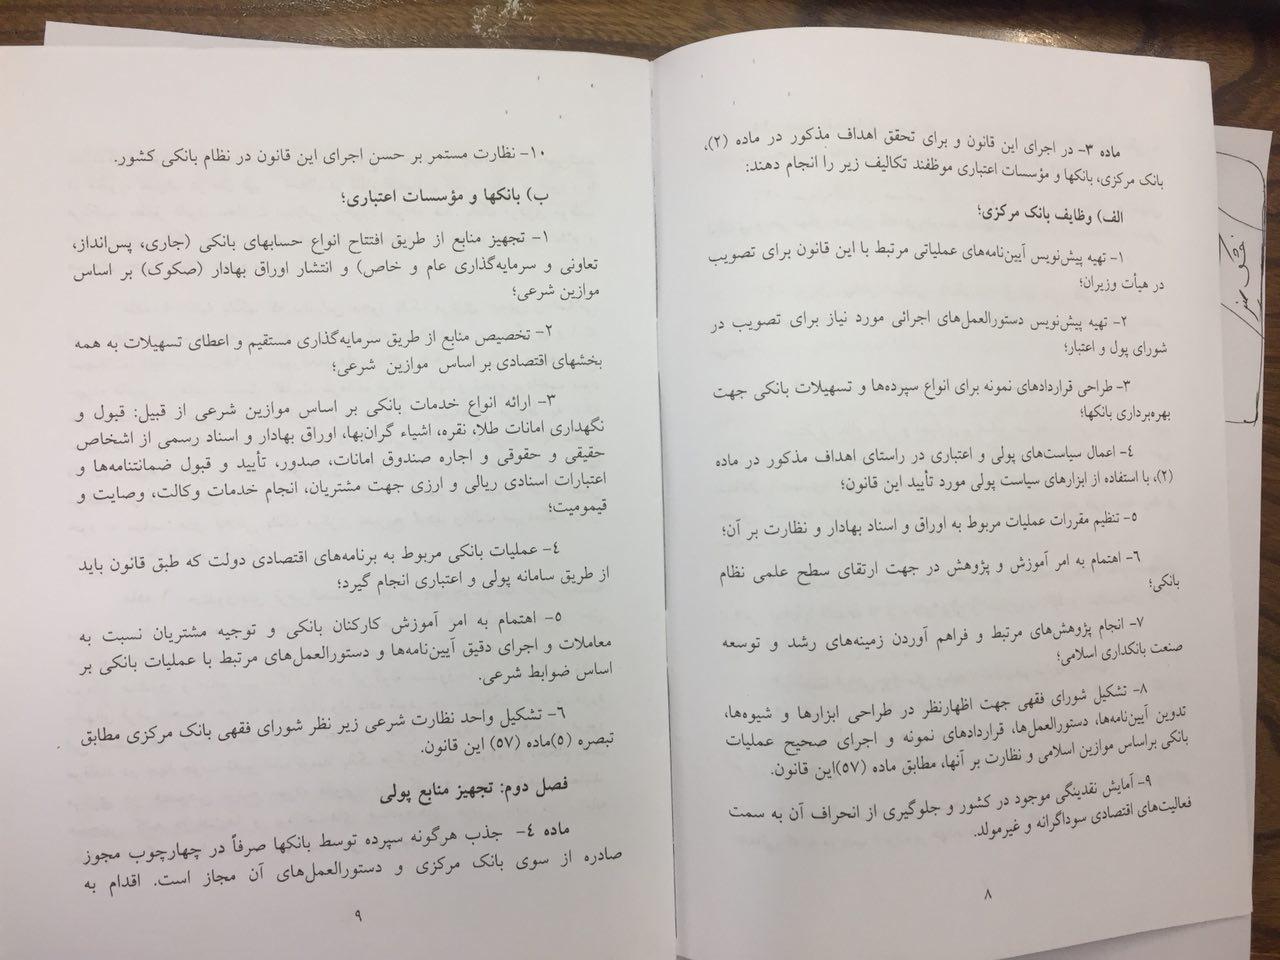 ماده ۳- در اجرای این قانون و برای تحقق اهداف مذکور در ماده (۲)،
بانک مرکزی، بانکها و مؤسسات اعتباری موظفند تکالیف زیر را انجام دهند:
الف) وظایف بانک مرکزی؛
۱- تهیه پیش‌نویس آیین‌نامه‌های عملیاتی مرتبط با این قانون برای تصویب
در هیأت وزیران؛
۲- تهیه پیش‌نویس دستورالعمل‌های اجرائی مورد نیاز برای تصویب در
شورای پول و اعتبار؛
۳- طراحی قراردادهای نمونه برای انواع سپرده‌ها و تسهیلات بانکی جهت
بهره‌برداری بانکها؛
٤- اعمال سیاست‌های پولی و اعتباری در راستای اهداف مذکور در ماده
(۲)، با استفاده از ابزارهای سیاست پولی مورد تأیید این قانون؛
۵- تنظیم مقررات عملیات مربوط به اوراق و اسناد بهادار و نظارت بر آن؛
٦- اهتمام به امر آموزش و پژوهش در جهت ارتقای سطح علمی نظام
بانکی؛
۷- انجام پژوهش‌های مرتبط و فراهم آوردن زمینه‌های رشد و توسعه
صنعت بانکداری اسلامی؛
۸- تشکیل شورای فقهی جهت اظهارنظر در طراحی ابزارها و شیوه‌ها،
تدوین آیین‌نامه‌ها، دستورالعمل‌ها، قراردادهای نمونه و اجرای صحیح عملیات
بانکی براساس موازین اسلامی و نظارت بر آنها، مطابق ماده (۵۷)این قانون.
۹- آمایش نقدینگی موجود در کشور و جلوگیری از انحراف آن به سمت
فعالیت‌های اقتصادی سوداگرانه و غیرمولد.
۸
۱۰- نظارت مستمر بر حسن اجرای این قانون در نظام بانکی کشور.
ب) بانکها و مؤسسات اعتباری؛
۱- تجهیز منابع از طریق افتتاح انواع حسابهای بانکی (جاری، پس‌انداز،
تعاونی و سرمایه‌گذاری عام و خاص) و انتشار اوراق بهادار (صکوک) بر اساس
موازین شرعی؛
۲- تخصیص منابع از طریق سرمایه‌گذاری مستقیم و اعطای تسهیلات به همه
بخشهای اقتصادی بر اساس موازین شرعی؛
۳- ارائه انواع خدمات بانکی بر اساس موازین شرعی از قبیل: قبول و
نگهداری امانات طلا، نقره، اشیاء گران‌بها، اوراق بهادار و اسناد رسمی از اشخاص
حقیقی و حقوقی و اجاره صندوق امانات، صدور، تأیید و قبول ضمانتنامه‌ها و
اعتبارات اسنادی ریالی و ارزی جهت مشتریان، انجام خدمات وکالت، وصایت و
قیمومیت؛
٤- عملیات بانکی مربوط به برنامه‌های اقتصادی دولت که طبق قانون باید
از طریق سامانه پولی و اعتباری انجام گیرد؛
۵- اهتمام به امر آموزش کارکنان بانکی و توجیه مشتریان نسبت به
معاملات و اجرای دقیق آیین‌نامه‌ها و دستورالعمل‌های مرتبط با عملیات بانکی بر
اساس ضوابط شرعی.
٦- تشکیل واحد نظارت شرعی زیر نظر شورای فقهی بانک مرکزی مطابق
تبصره (۵)ماده (۵۷) این قانون.
فصل دوم: تجهیز منابع پولی
ماده ٤- جذب هرگونه سپرده توسط بانکها صرفاً در چهارچوب مجوز
صادره از سوی بانک مرکزی و دستورالعمل‌های آن مجاز است. اقدام به
۹